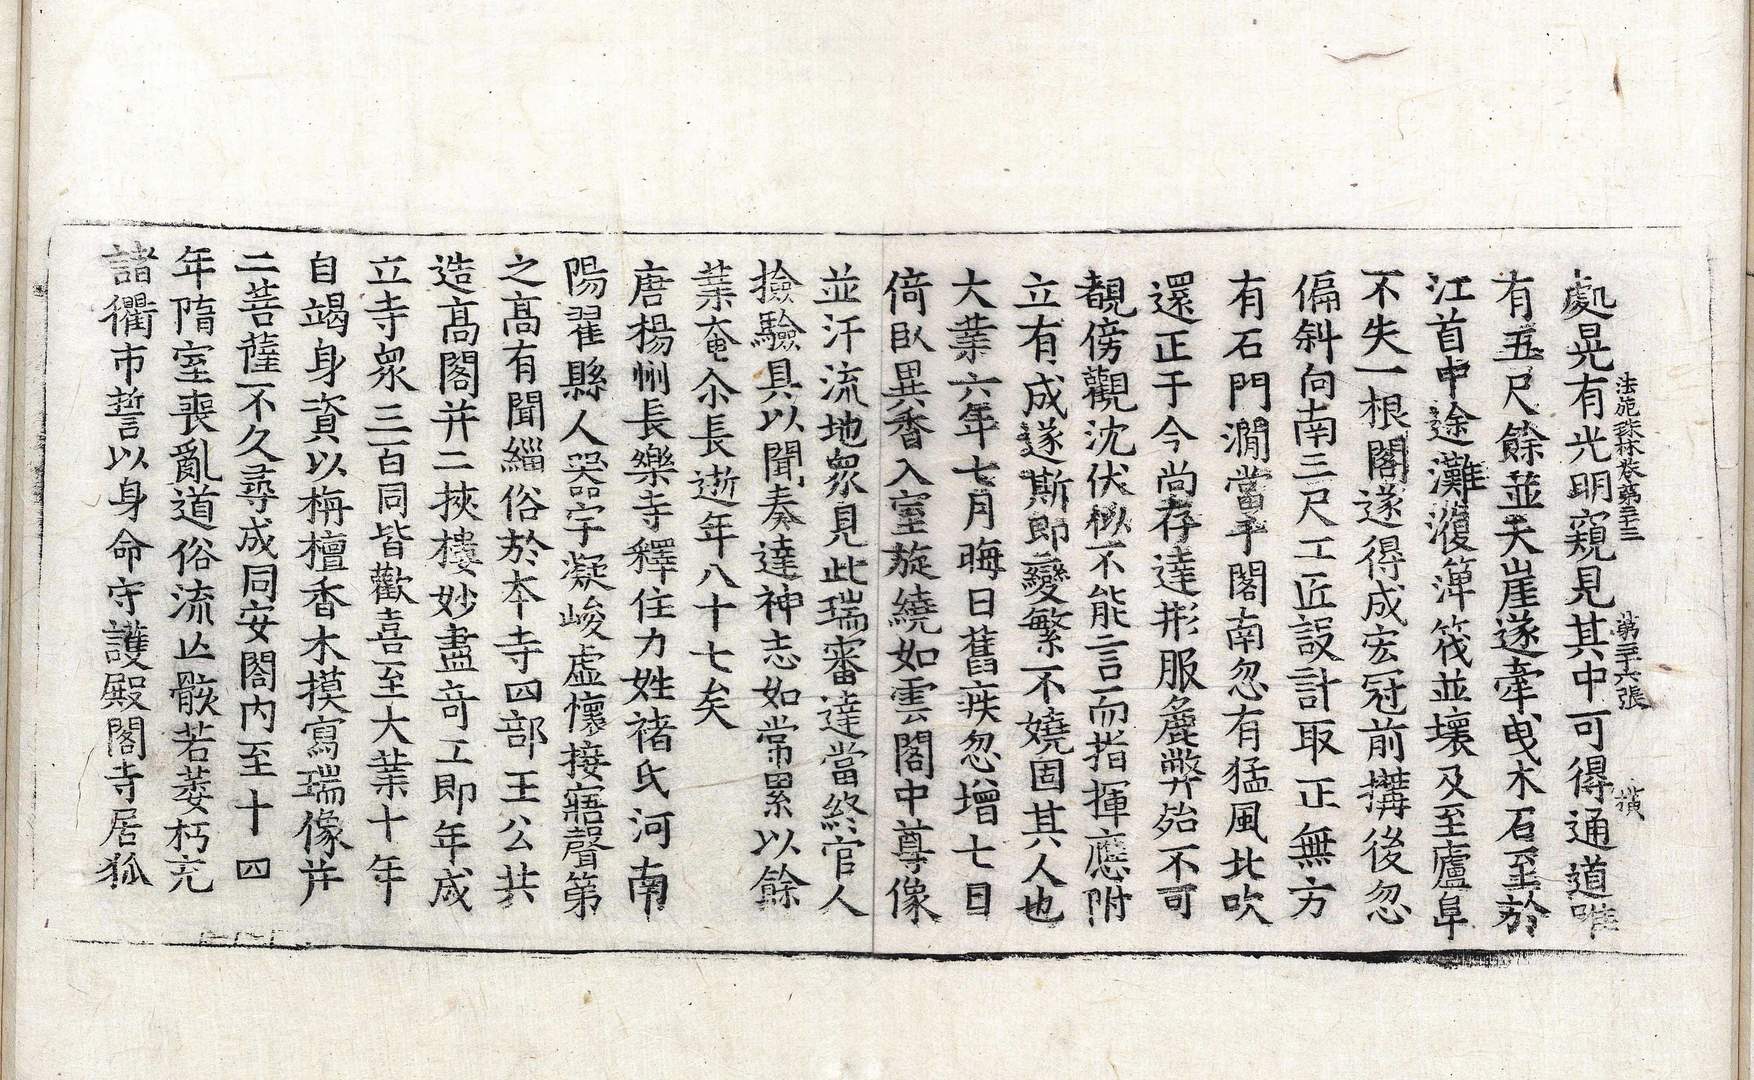 法苑珠林卷第三十三　第三十六張　橫
處晃有光明窺見其中可得通道唯
有五尺餘並天崖遂牽曳木石至於
江首中途灘澓簰筏並壞及至廬阜
不失一根閣遂得成宏冠前搆後忽
偏斜向南三尺工匠設計取正無方
有石門澗當乎閣南忽有猛風北吹
還正于今尚存達形服麁弊殆不可
覩傍觀沈伏似不能言而指揮應附
立有成遂斯即變繁不嬈固其人也
大業六年七月晦日舊疾忽增七日
倚臥異香入室旋繞如雲閣中尊像
並汗流地衆見此瑞審達當終官人
撿驗具以聞奏達神志如常累以餘
業奄尒長逝年八十七矣
唐楊州長樂寺釋住力姓禇氏河南
陽翟縣人器宇凝峻虛懷接寤聲第
之高有聞緇俗於本寺四部王公共
造高閣并二挾樓妙盡竒工即年成
立寺衆三百同皆歡喜至大業十年
自竭身資以栴檀香木摸寫瑞像并
二菩薩不久尋成同安閣內至十四
年隋室喪亂道俗流亾骸若萎朽充
諸衢市誓以身命守護殿閣寺居狐